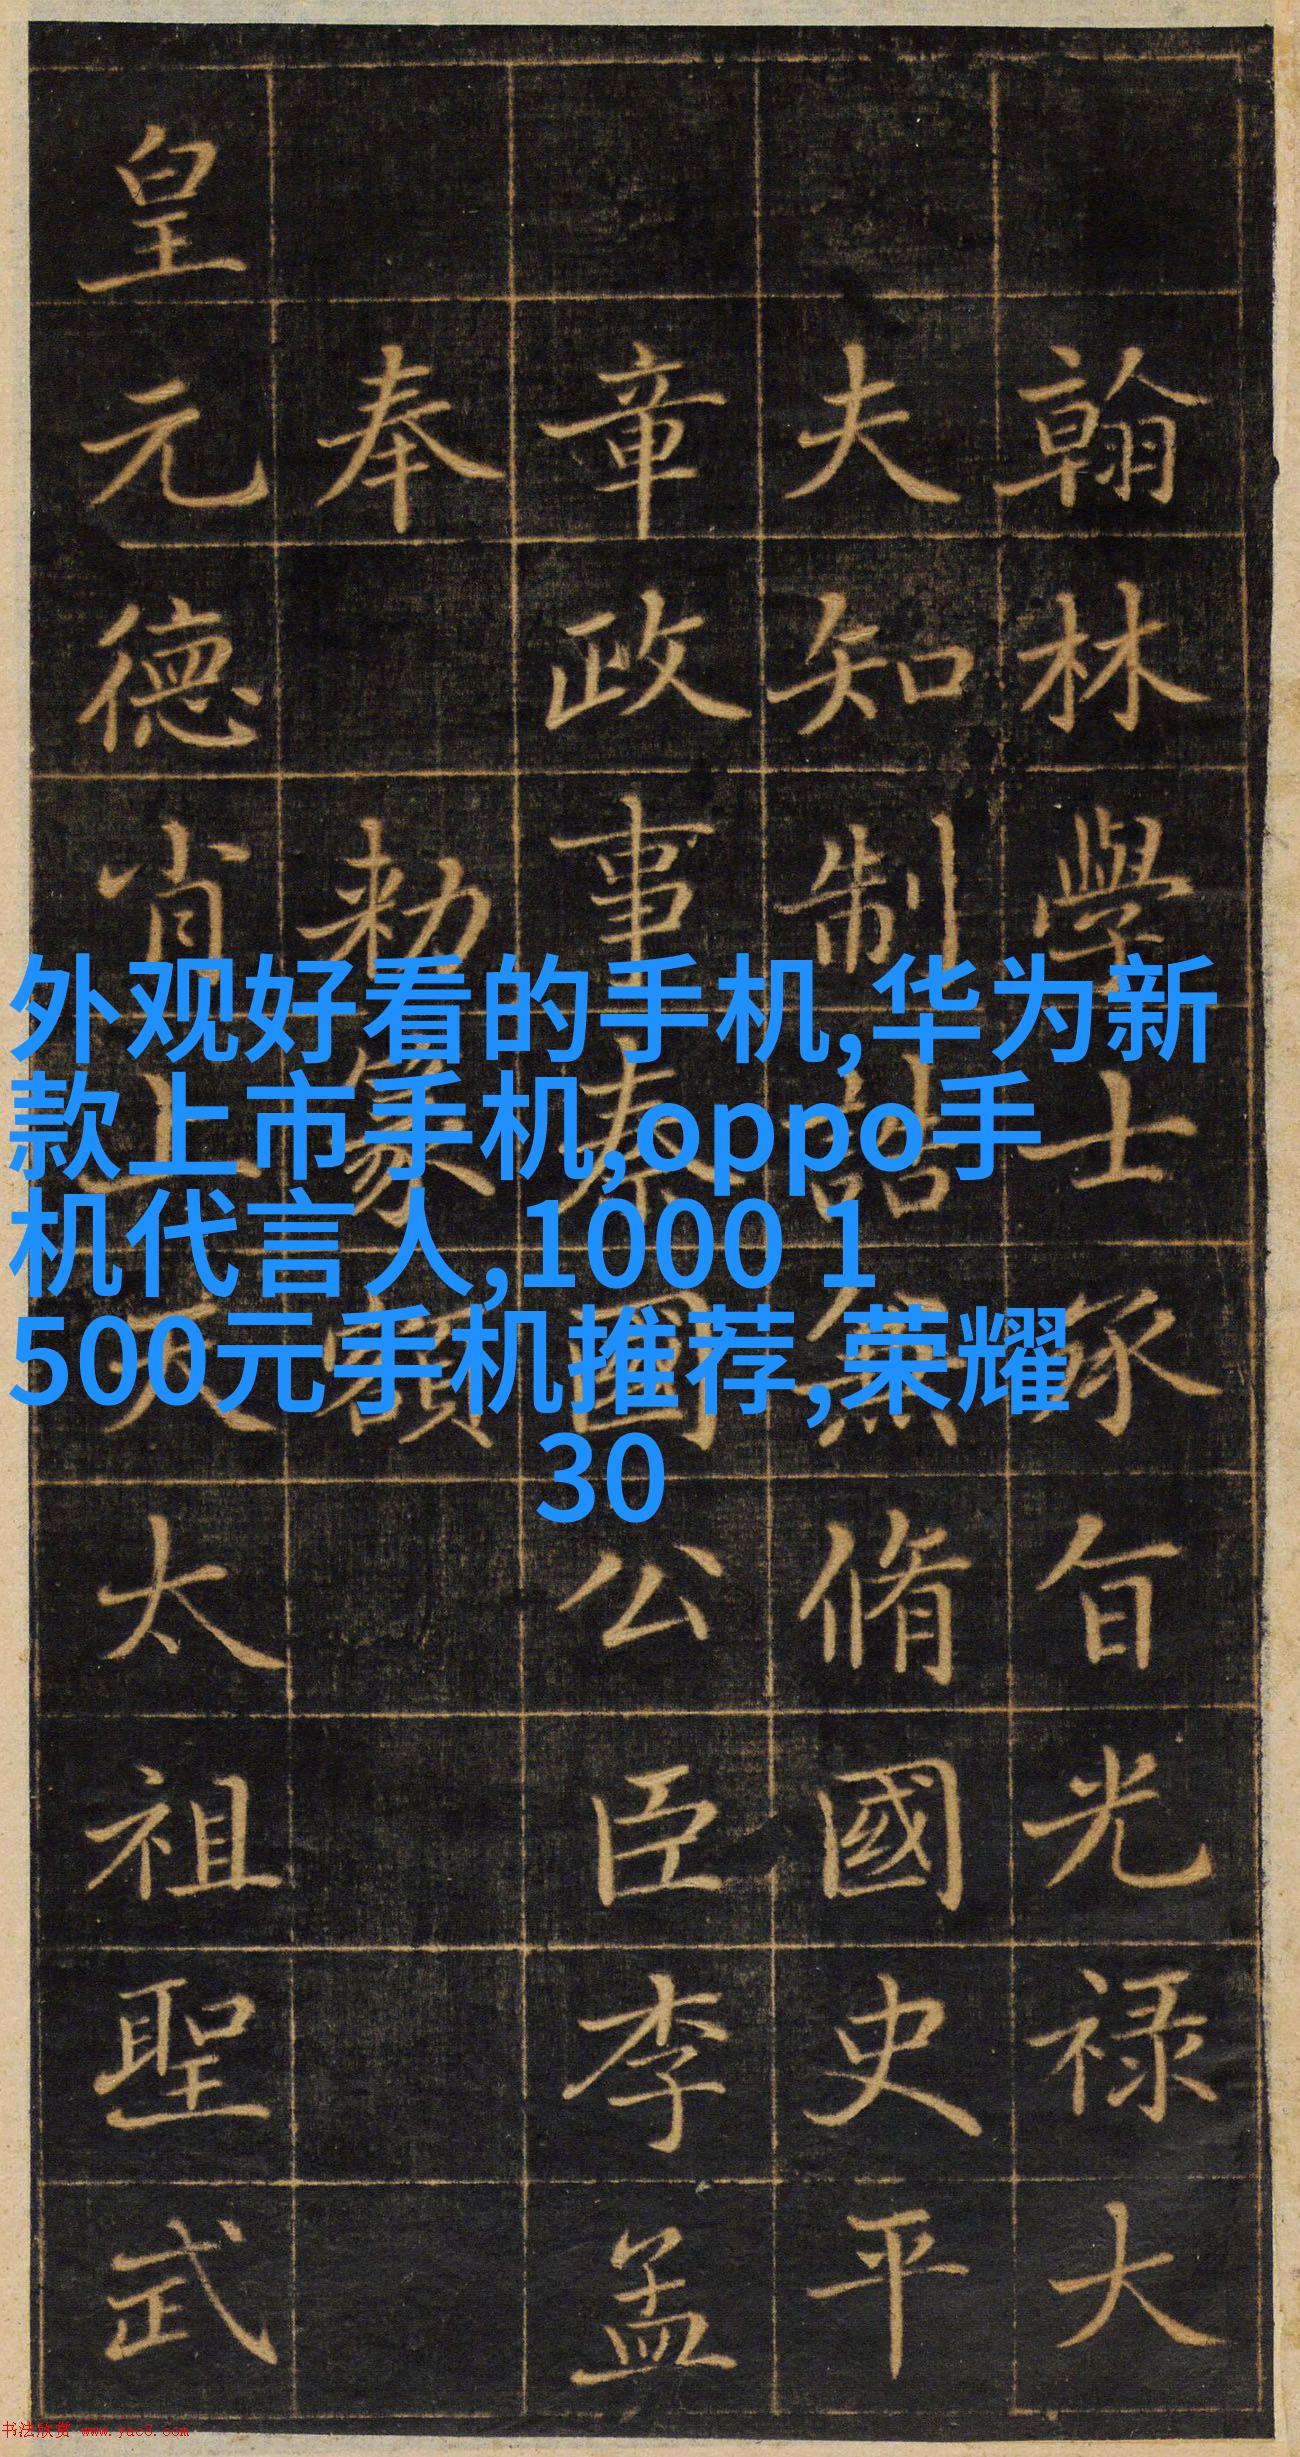 翰林學士承旨光禄大
夫知制誥兼脩國史平
章政事秦國公臣李孟
奉 勑篆額
皇元德肖上天太祖聖武
外观好看的手机,华为新
款上市手机,oppo手
机代言人,1000 1
500元手机推荐,荣耀
30
书法欣赏 www.yac8.com